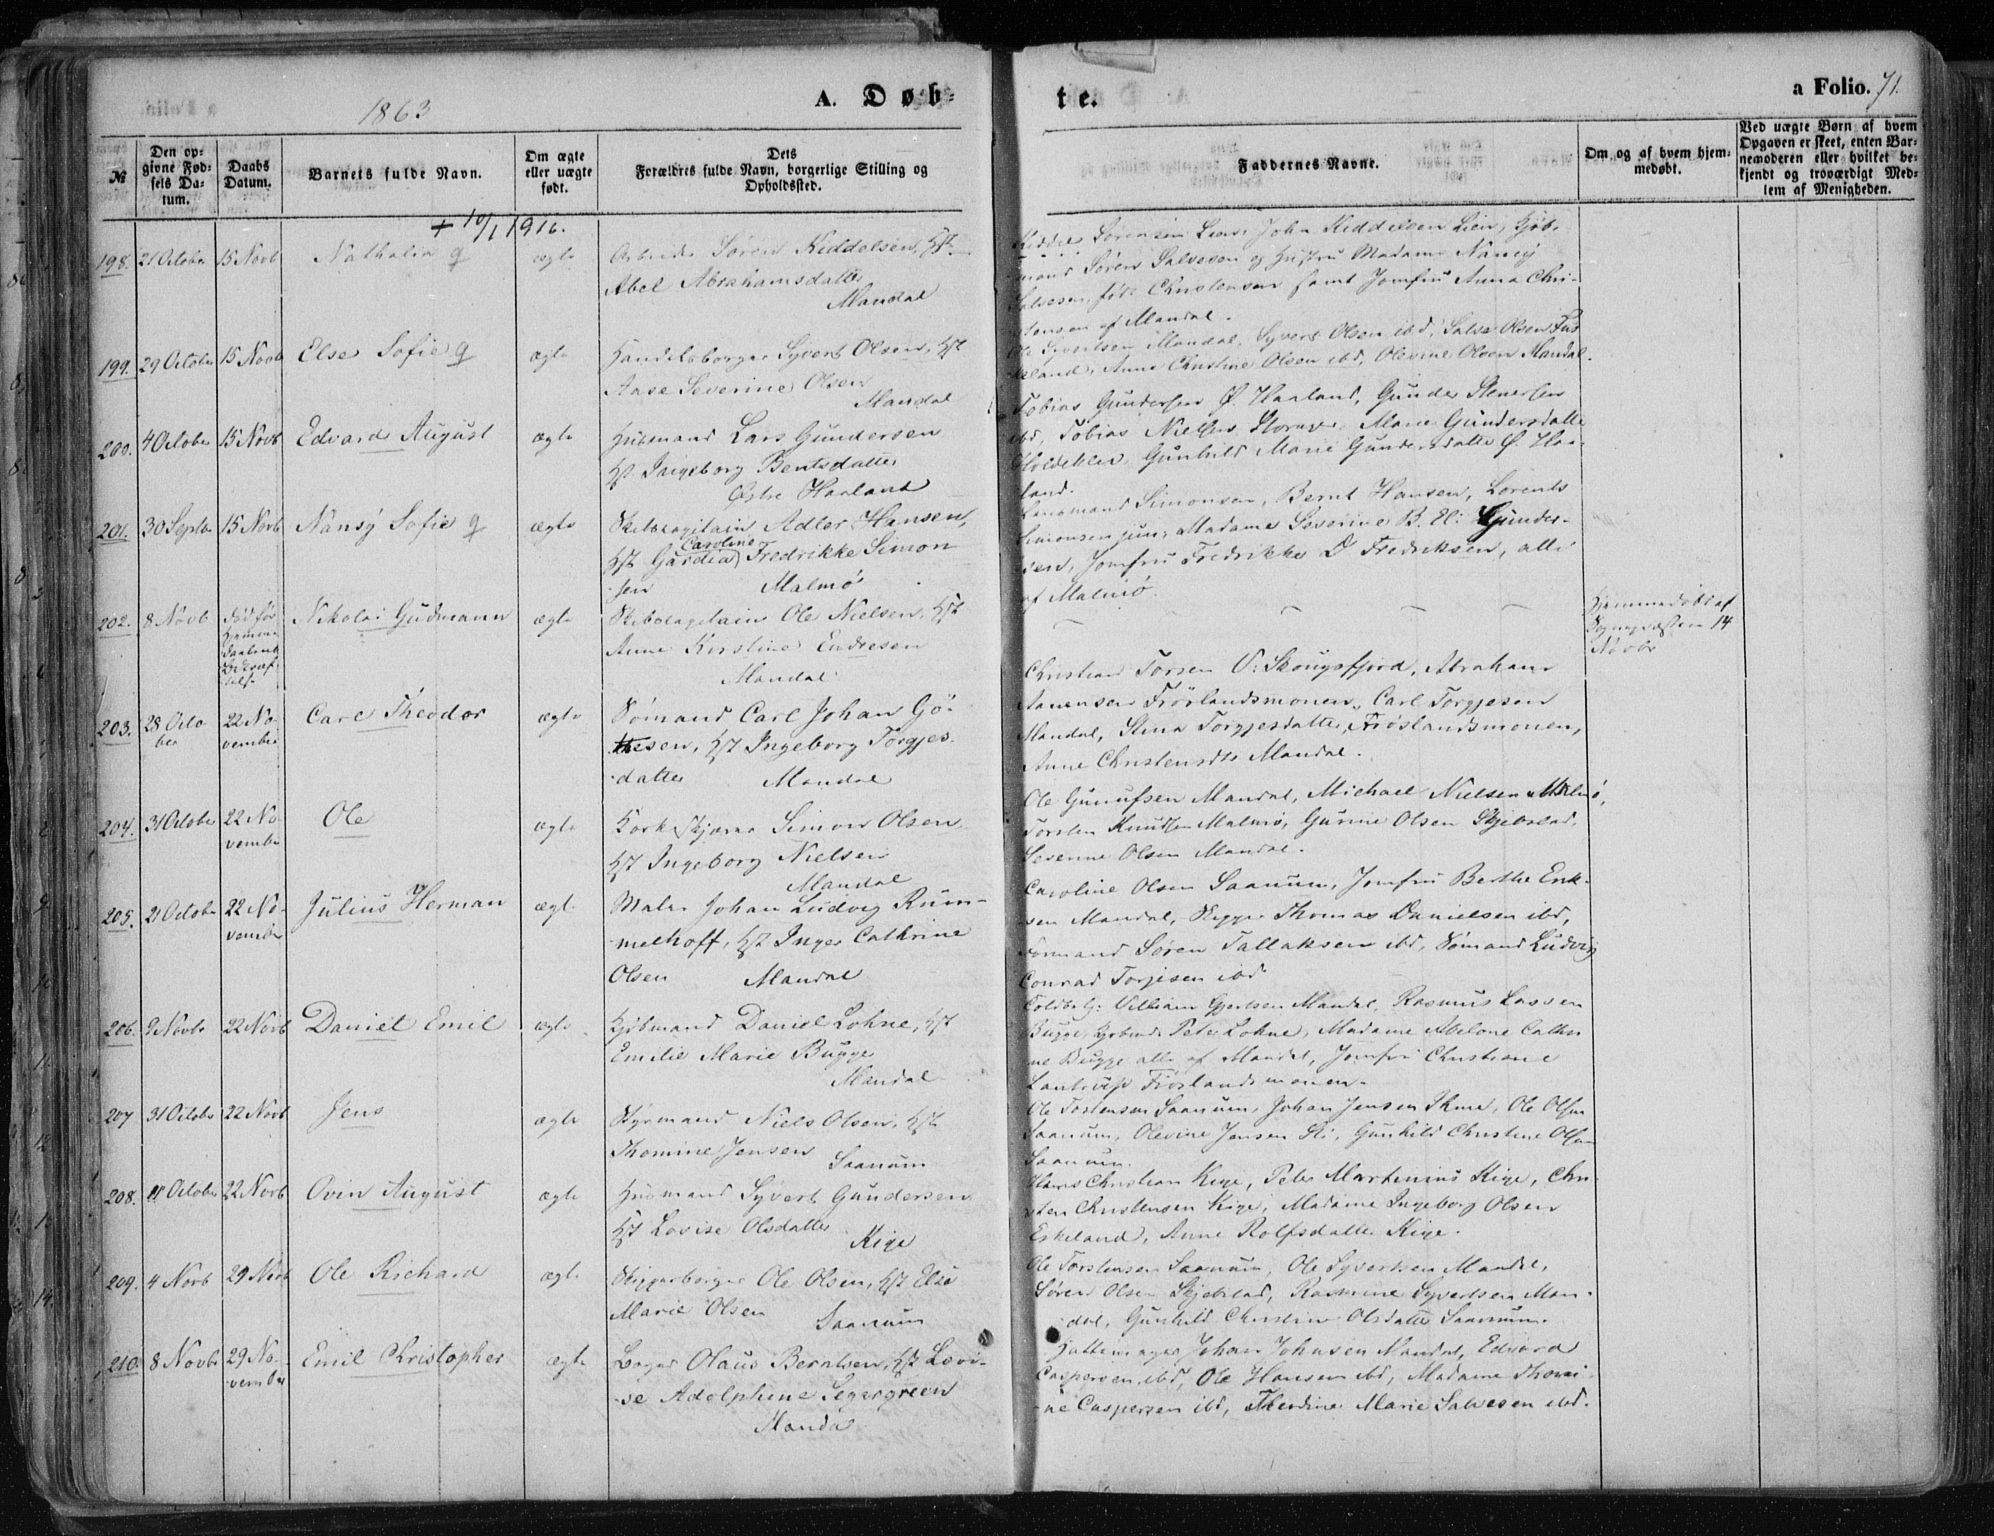 1863
A. Døb-
te.
a Folio. 71.
№
Den op-
givne Fød-
sels Da-
tum.
Daabs
Datum.
Barnets fulde Navn.
Om ægte
eller uægte
født.
Dets
Forældres fulde Navn, borgerlige Stilling og
Opholdssted.
Faddernes Navne.
Om og af hvem hjem-
medøbt.
Ved uægte Børn af hvem
Opgaven er skeet, enten Bar-
nemoderen eller hvilket be-
kjendt og troværdigt Med-
lem af Menigheden.
+ 10/1 1916.
198. 21 Octobr 15 Novb Nathalia ægte Arbeider Søren Kiddelsen, Hst
Abel Abrahamsdatter
Mandal
Sørensen Lien, John Kiddelsen Lien, Kjøb-
mand Søren Salvesen og Hustru Madame Nancy
Salvesen, født Christensen samt Jomfru Anna Chri-
stensen af Mandal.
199. 29 Octobr 15 Novb Else Sofie ægte Handelsborger Syvert Olsen, Hst
Aase Severine Olsen
Mandal
Ole Syvertsen Mandal, Syvert Olsen ibd, Salve Olsen
Anne Christine Olsen ibd, Olevine Olsen Mandal.
200. 4 October 15 Novb Edvard August ægte Huusmand Lars Gundersen
Hst. Ingeborg Bentsdatter
Østre Haaland
Tobias Gundersen Ø. Haaland, Gunder Stenersen
ibd, Tobias Nielsen Marie Gundersdatter
Gunhild Marie Gundersdatter Ø. Haa-
land.
201. 30 Septbr 15 Novb Nansy Sofie ægte Skibscapitain Adler Hansen,
Hst Gardia Caroline Fredrikke Simon-
sen Malmø
Simonsen, Bernt Hansen, Lorents
Simonsen jun, Madame Severine B. El: Gunder-
sen, Jomfru Fredrikke D Fredriksen, alle
af Malmø.
202. 8 Novb Nikolai Gudmann ægte Skibscapitain Ole Nielsen, Hst
Anne Kirstine Endresen
Mandal
Hjemmedøbt af
Sognepræsten 14
Novbr
203. 28 Octo-
ber 22 No-
vember Carl Theodor ægte Sømand Carl Johan Gö-
sen, Hst Ingeborg Torgjes-
datter Mandal
Christian Torsen V: Skougsfjord, Abraham
Aanensen Frøslandsmonen, Carl Torgjesen
Mandal, Stina Torgjesdatter Frøslandsmonen,
Anne Christensdtr Mandal.
204. 31 Octobr 22 No-
vember Ole ægte Korkskjærer Simon Olsen
Hst Ingeborg Nielsen
Mandal
Ole Gunufsen Mandal, Michael Nielsen Malmø,
Torsten Knudsen Malmø, Gurine Olsen Skjebstad,
Severine Olsen Mandal.
205. 21 October 22 No-
vember Julius Herman ægte Maler Johan Ludvig Rum-
melhoff, Hst Inger Cathrine
Olsen Mandal
Caroline Olsen Saanum, Jomfru Berthe Erik-
sen Mandal, Skipper Thomas Danielsen ibd,
Sømand Søren Tallaksen ibd, Sømand Ludvig
Conrad Torjesen ibd.
206. 9 Novbr 22 Novb Daniel Emil ægte Kjøbmand Daniel Lohne, Hst
Emilie Marie Bugge
Mandal
Toldbetj: Villiam Gjertsen Mandal, Rasmus Lassen
Bugge, Peter Lohne, Madame Abelone Cathri-
ne Bugge alle af Mandal, Jomfru Christiane
Lantrup Frøslandsmonen.
207 31 Octobr 22 Novb Jens ægte Styrmand Niels Olsen, Hst
Thomine Jensen Saanum
Ole Torstensen Saanum, Johan Jensen Ole Olsen
Saanum, Olevine Jensen Gunhild Christine Olsen
Saanum.
208. 11 October 22 Novb Ovin August ægte Huusmand Syvert Gundersen
Hst Lovise Olsdatter
Kige
Hans Christian Kige, Peter Martinius Kige, Chri-
sten Christensen Kige, Madame Ingeborg Olsen
Eskeland, Anne Rolfsdatter Kige.
209. 4 Novb 29 Novb Ole Richard ægte Skipperborger Ole Olsen, Hst Else
Marie Olsen Saanum
Ole Torstensen Saanum, Ole Syvertsen Mandal,
Søren Olsen Skjebstad, Rasmine Syvertsen Man-
dal, Gunhild Christine Olsdatter Saanum.
210. 8 Novbr 29 No-
vember Emil Christopher ægte Bager Olaus Berntsen, Hst Lovi-
se Adolphine Segergreen
Mandal
Hattemager Johan Johnsen Mandal, Edvard
Caspersen ibd, Ole Hansen ibd, Madame Thomi-
ne Caspersen ibd, Marie Salvesen ibd.